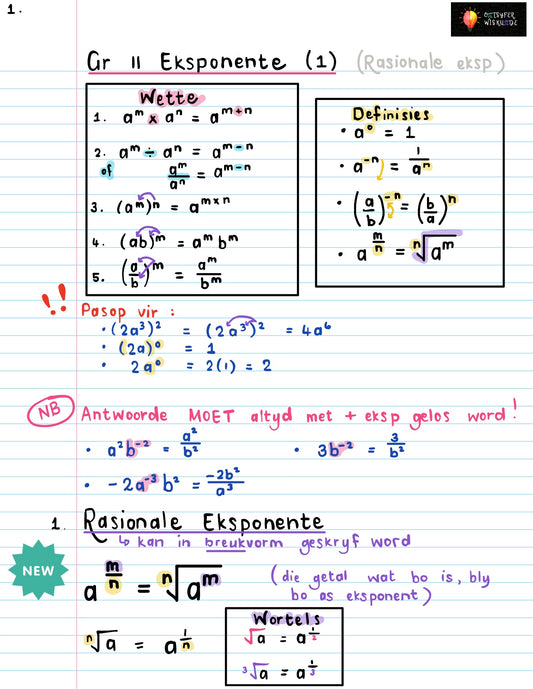 1.
ONTSYFER
WISKUNDE
Gr 11 Eksponente (1) (Rasionale eksp)
Wette
1. aᵐ × aⁿ = aᵐ⁺ⁿ
2. aᵐ ÷ aⁿ = aᵐ⁻ⁿ
of aᵐ/aⁿ = aᵐ⁻ⁿ
3. (aᵐ)ⁿ = aᵐˣⁿ
4. (ab)ᵐ = aᵐ bᵐ
5. (a/b)ᵐ = aᵐ/bᵐ
Definisies
• a⁰ = 1
• a⁻ⁿ = 1/aⁿ
• (a/b)⁻ⁿ = (b/a)ⁿ
• a^(m/n) = ⁿ√aᵐ
!! Pasop vir :
• (2a³)² = (2a³)² = 4a⁶
• (2a)⁰ = 1
• 2a⁰ = 2(1) = 2
NB Antwoorde MOET altyd met + eksp gelos word!
• a²b⁻² = a²/b² • 3b⁻² = 3/b²
• -2a⁻³b² = -2b²/a³
1. Rasionale Eksponente
↳ kan in breukvorm geskryf word
NEW
a^(m/n) = ⁿ√aᵐ (die getal wat bo is, bly
bo as eksponent)
ⁿ√a = a^(1/n)
Wortels
√a = a^(1/2)
³√a = a^(1/3)